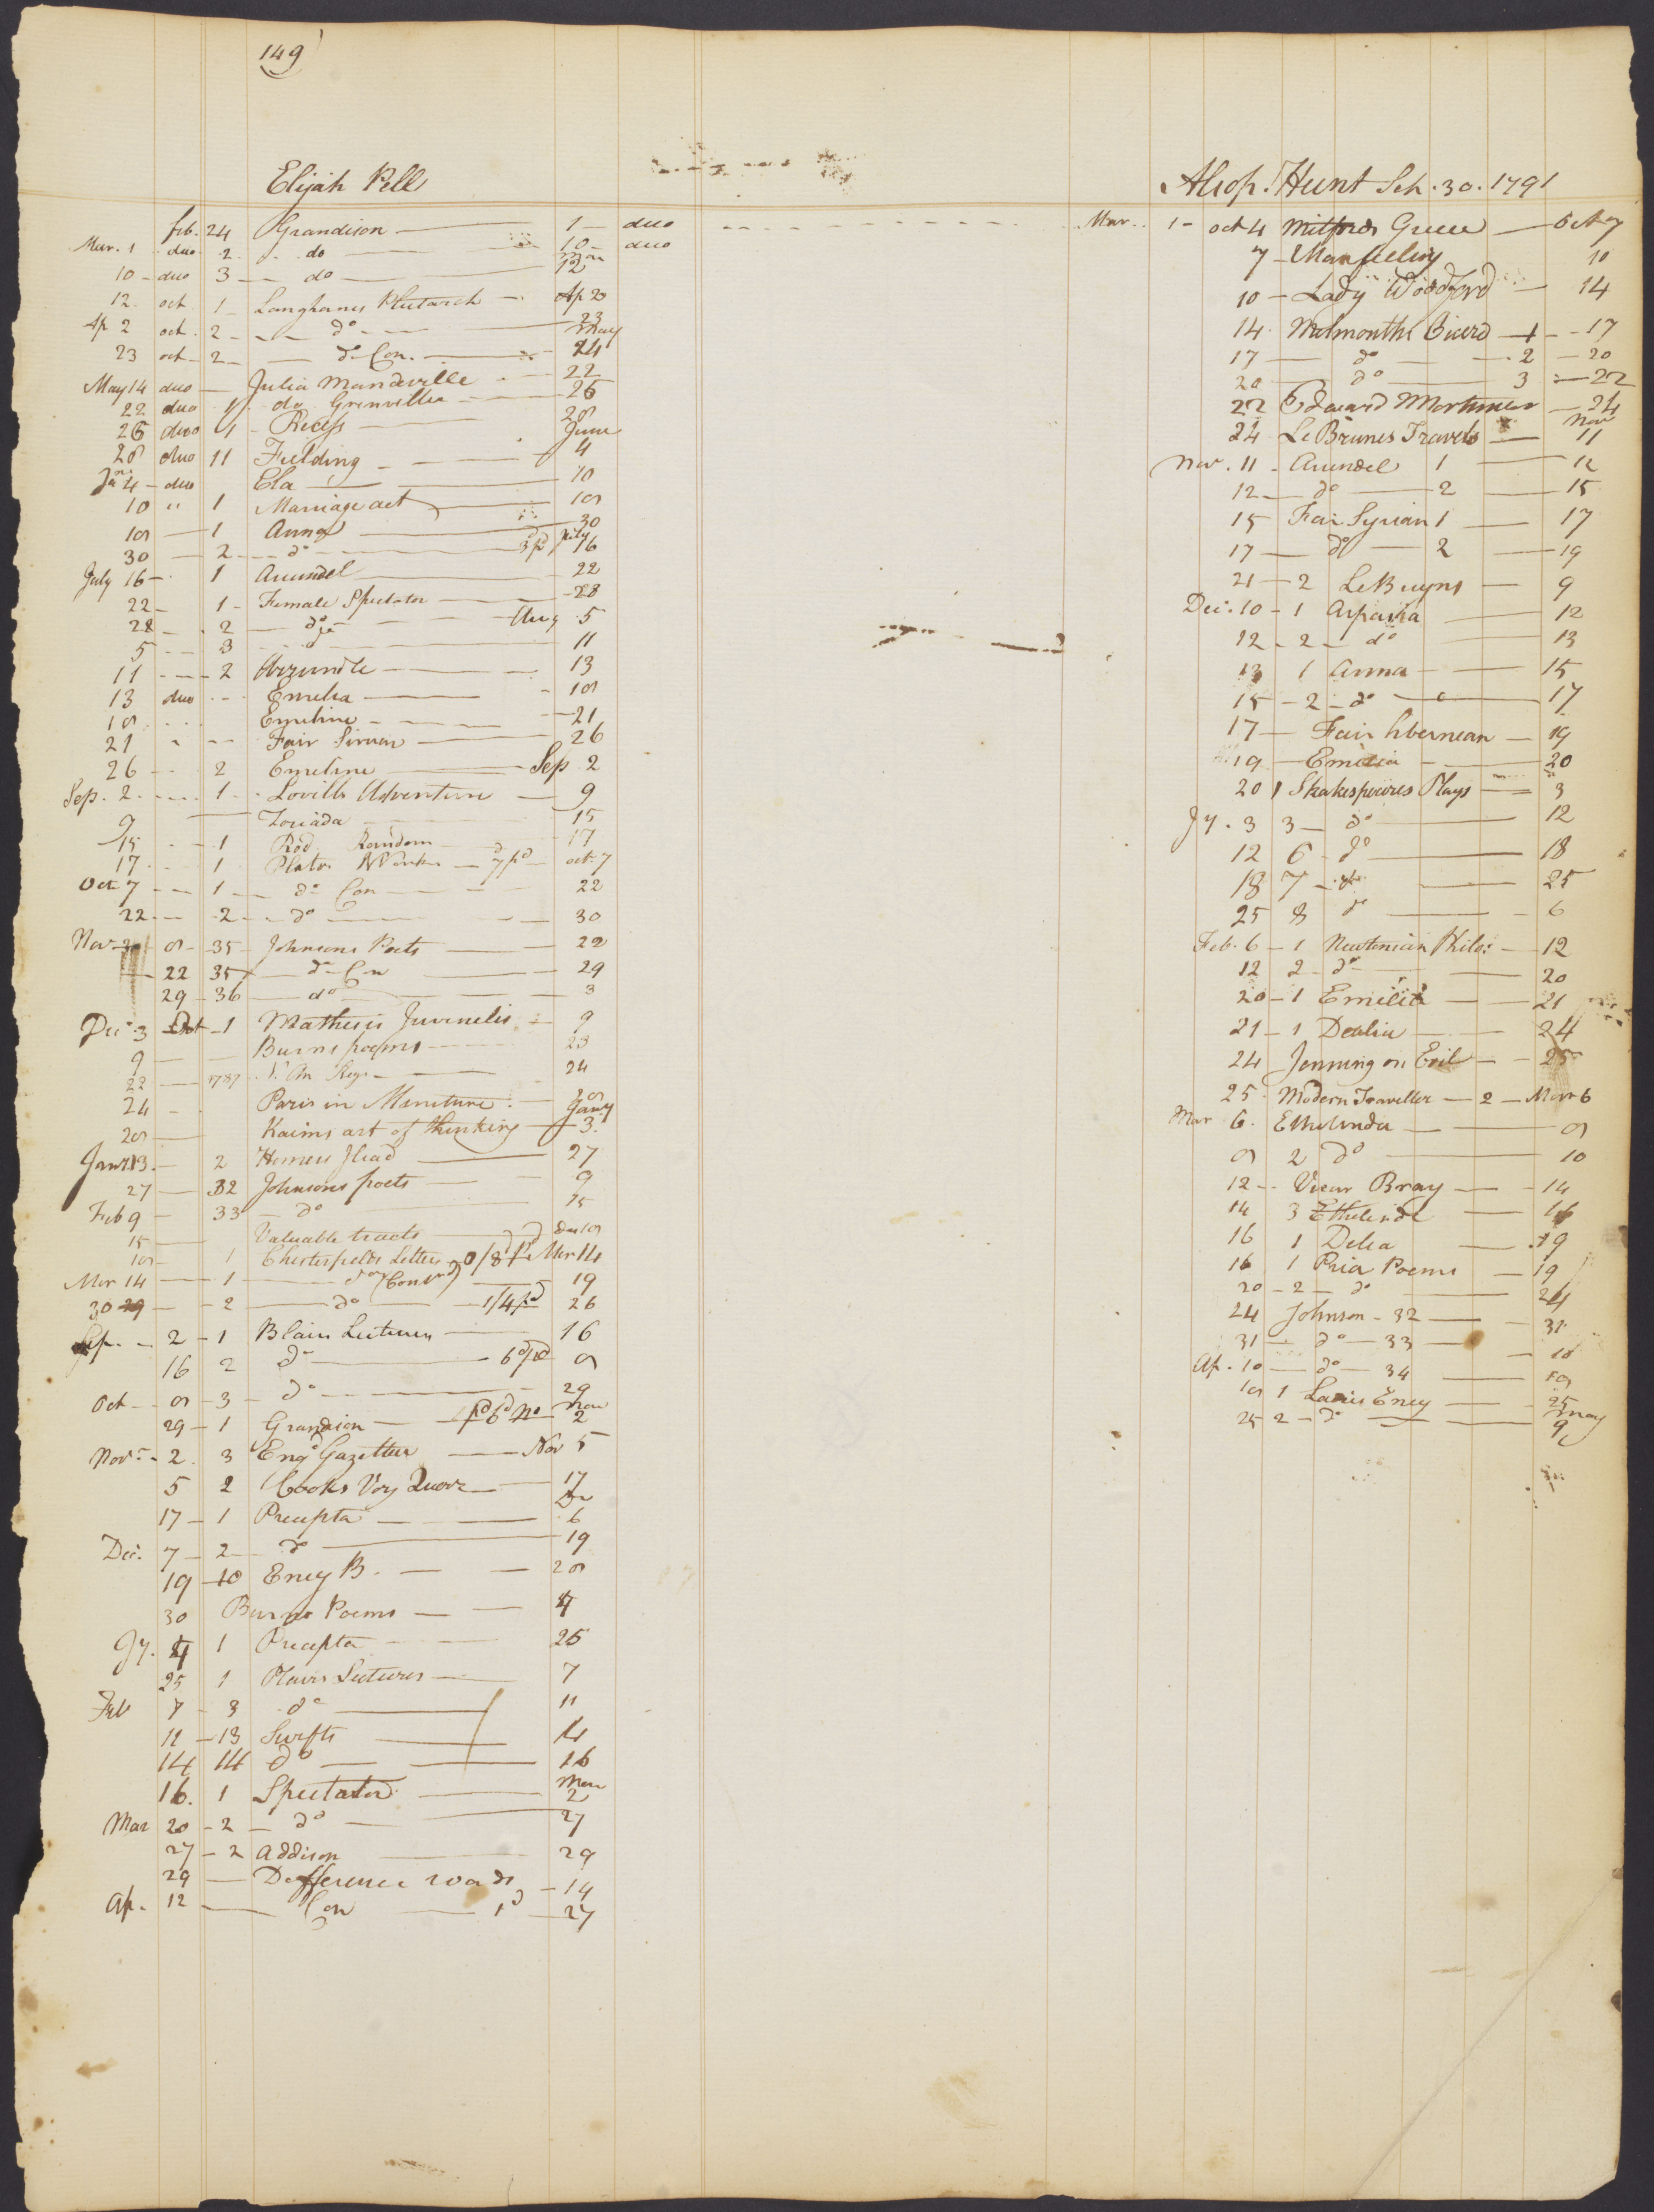 149
Elijah Pell
feb. 24 Grandison 1 duo
Mar. 1 duo 2 do 10 duo
10 duo 3 do Mar 12
12 oct 1 Langhanes Plutarch Ap 20
Ap 2 oct 2 do 23
23 oct 2 do Con. May 24
May 14 duo Julia Mandeville 22
22 duo 1 do Grenvilla 26
26 duo 1 Recess 28
28 duo 11 Fielding June 4
Jne 4 duo Ela 10
10 " 1 Marriage act 18
18 1 Anna 30
30 2 do 3 pd July 16
July 16 1 Arundel 22
22 1 Female Spectator 28
28 2 do Aug 5
5 3 do 11
11 2 Arzundle 13
13 duo Emelia 18
18 Emeline 21
21 Fair Siruan 26
26 2 Emeline Sep 2
Sep. 2 1 Lovills Adventure 9
9 Zoriada 15
15 1 Rod Random 17
17 1 Platos Works 7 pd oct 7
Oct 7 1 do Con 22
22 2 do 30
Nov 8 35 Johnsons Poets 22
22 35 do Con 29
29 36 do 3
Dec 3 Oct 1 Mathesis Juvenelis 9
9 Burns poems 23
22 1787 N. An Reg. 24
24 Paris in Minature 28
28 Kaims art of thinking Jany 3
Jany 13 2 Homers Iliad 27
27 32 Johnsons poets 9
Feb 9 33 do 15
15 Valuable tracts 18
18 1 Chesterfields Letters 0/8 Mar 14
Mar 14 1 do (Cont'd) 19
30 19 2 do 1/4 pd 26
Sep. 2 1 Blairs Lectures 16
16 2 do 6d pd 8
Oct 8 3 do 29
29 1 Grandison pd 6d No Nov 2
Novr 2 3 Engd Gazetteer Nov 5
5 2 Cooks Voy Quor 17
17 1 Precepta De 6
Dec. 7 2 do 19
19 10 Ency B. 28
30 Burns Poems 4
Jy. 4 1 Precepta 25
25 1 Blairs Lectures 7
Feb 7 3 do 11
11 13 Swifts 14
14 14 do 16
16. 1 Spectator Mar 2
Mar 20 2 do 27
27 2 Addison 29
29 Defference words 14
Ap. 12 Con 1d 27
Alsop. Hunt Seh. 30. 1791
Mar. 1 oct 4 Mitfords Greece Oct 7
7 Man feeling 10
10 Lady Woodford 14
14 Melmonths Cicero 1 17
17 do 2 20
20 do 3 22
22 Edward Mortimer 24
24 Le Brunes Travels Nov 11
Nov. 11 Arundel 1 12
12 do 2 15
15 Fair Syrian 1 17
17 do 2 19
21 2 LeBruyns 9
Dec. 10 1 Aspasia 12
12 2 do 13
13 1 Anna 15
15 2 do 17
17 Fair hbernean 19
19 Emilia 20
20 1 Shakespeares Plays 3
Jy. 3 3 do 12
12 6 do 18
18 7 do 25
25 8 do 6
Feb. 6 1 Newtonian Philos 12
12 2 do 20
20 1 Emilia 21
21 1 Dealia 24
24 Jenning on Evil 25
25 Modern Traveller 2 Mar 6
Mar 6. Ethelinda 8
8 2 do 10
12 Vicar Bray 14
14 3 Ethelinde 16
16 1 Delia 19
16 1 Prior Poems 19
20 2 do 24
24 Johnson 32 31
31 do 33 10
Ap. 10 do 34 18
18 1 Ladies Ency 25
25 2 do May 9